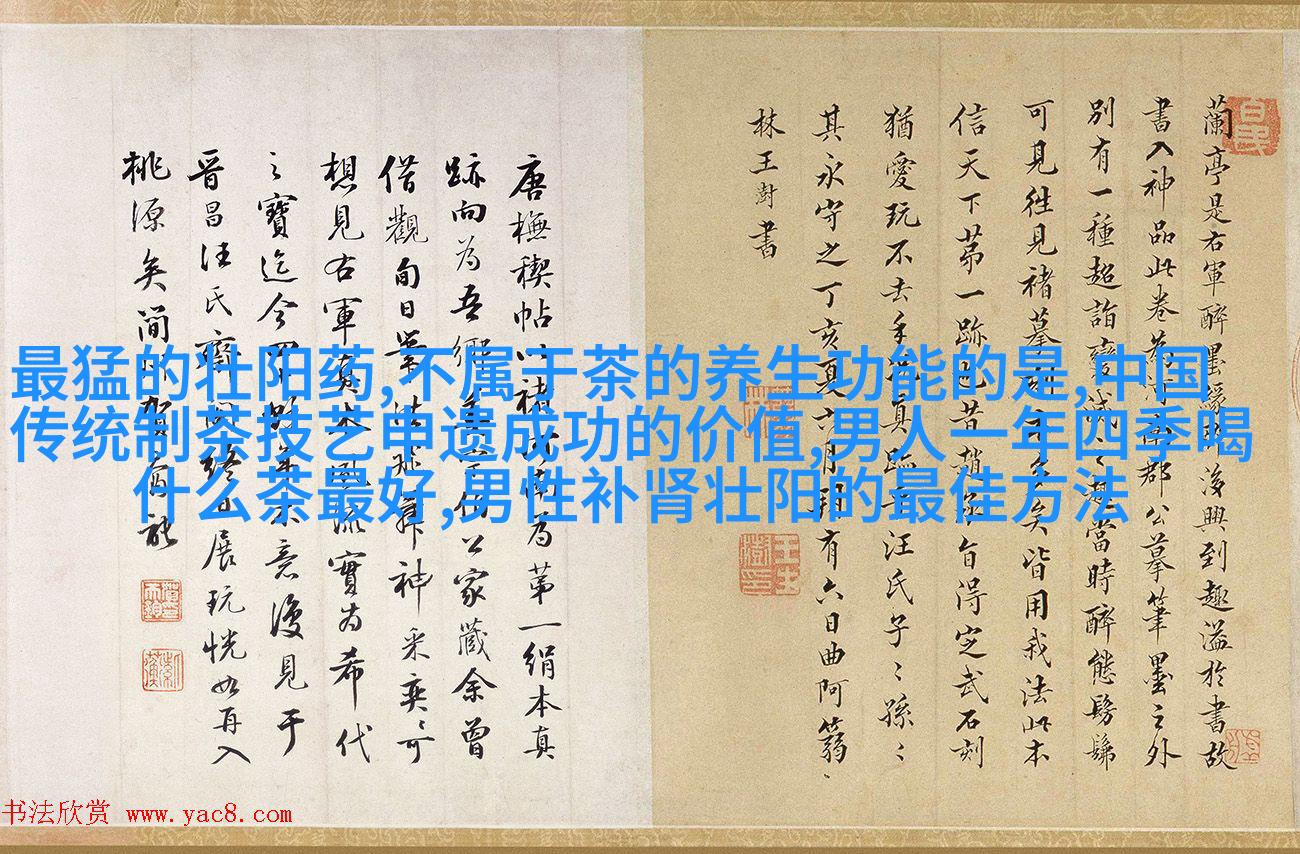 最猛的壮阳药,不属于茶的养生功能的是,中国
传统制茶技艺申遗成功的价值,男人一年四季喝
什么茶最好,男性补肾壮阳的最佳方法
蘭亭是右軍醉墨緣後興到趣溢於書故
書入神品此卷為河南郡公摹筆墨之外
別有一種超詣當時醉態髣髴
可見往見褚摹多矣皆用我法此本
信天下第一跡也昔趙旨得定武石刻
猶愛玩不去手況真跡乎汪氏子〻孫〻
其永守之丁亥夏六月朔有六日曲阿篛
林王澍書
唐橅禊帖以褚為第一絹本真
跡向為吾鄉家藏余曾
借觀旬日筆法飛舞神采奕〻可
想見右軍風流實為希代
之寶迄今四意復見于
晋昌汪氏齋終日展玩恍如再入
桃源矣簡
书法欣赏 www.yac8.com